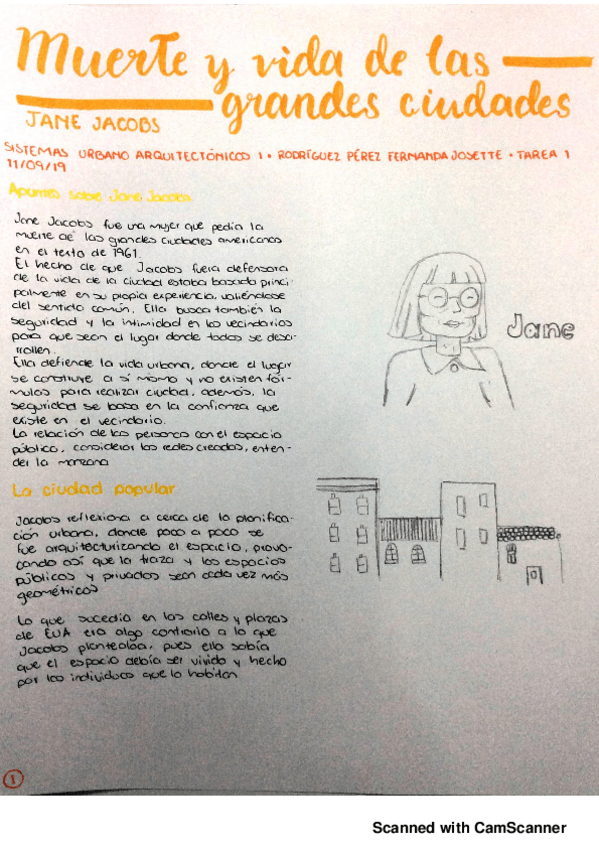 Muerte y vida de las
grandes ciudades
JANE JACOBS
SISTEMAS URBANO ARQUITECTÓNICOS 1 • RODRÍGUEZ PÉREZ FERNANDA JOSETTE • TAREA 1
11/09/19
Apuntes sobre Jane Jacobs
Jane Jacobs fue una mujer que pedía la
muerte de las grandes ciudades americanas
en el texto de 1961.
El hecho de que Jacobs fuera defensora
de la vida de la ciudad estaba basado princi-
palmente en su propia experiencia, valiéndose
del sentido común. Ella busca también la
seguridad y la intimidad en los vecindarios
para que sean el lugar donde todos se desa-
rrollen.
Ella defiende la vida urbana, donde el lugar
se construye a sí mismo y no existen fór-
mulas para realizar ciudad, además, la
seguridad se basa en la confianza que
existe en el vecindario.
La relación de las personas con el espacio
público, considerar las redes creadas, enten-
der la manzana
Jane
La ciudad popular
Jacobs reflexiona a cerca de la planifica-
ción urbana, donde poco a poco se
fue arquitecturizando el espacio, provo-
cando así que la traza y los espacios
públicos y privados sean cada vez más
geométricos
Lo que sucedía en las calles y plazas
de EUA era algo contrario a lo que
Jacobs planteaba, pues ella sabía
que el espacio debía ser vivido y hecho
por los individuos que lo habitan
1
Scanned with CamScanner